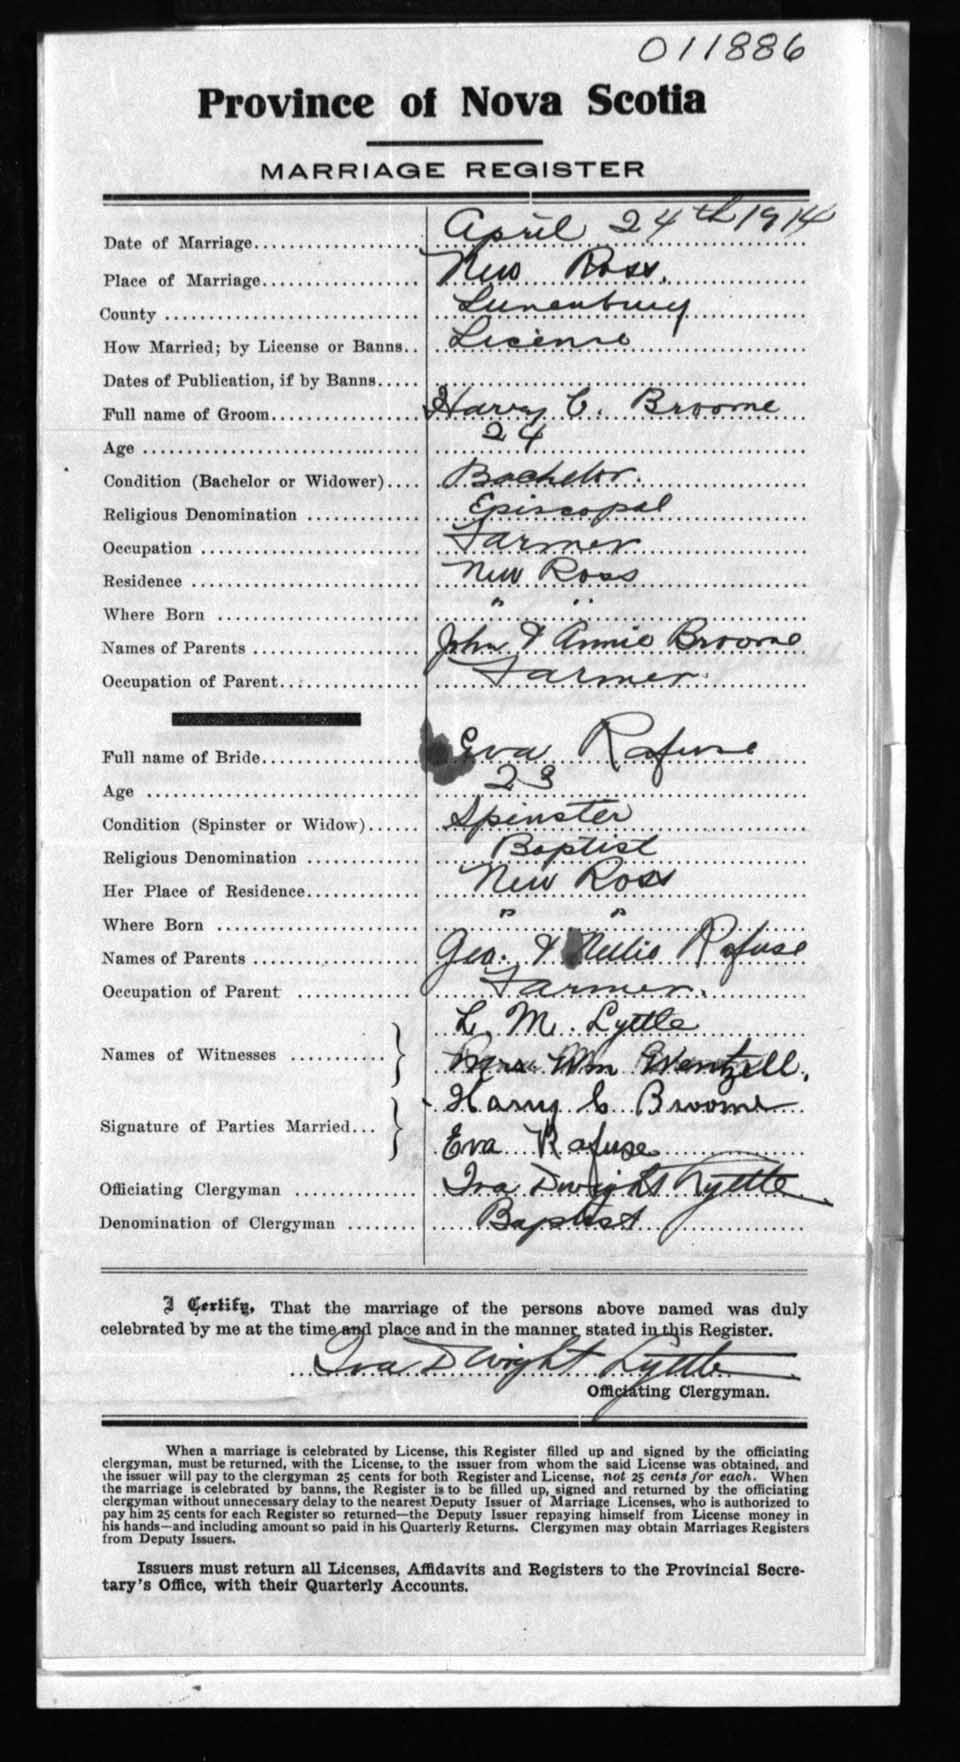 011886
Province of Nova Scotia
MARRIAGE REGISTER
Date of Marriage April 24th 1914
Place of Marriage New Ross.
County Lunenburg
How Married; by License or Banns License
Dates of Publication, if by Banns
Full name of Groom Harry C. Broome
Age 24
Condition (Bachelor or Widower) Bachelor.
Religious Denomination Episcopal
Occupation Farmer
Residence New Ross
Where Born " "
Names of Parents John & Annie Broome
Occupation of Parent Farmer
Full name of Bride Eva Rafuse
Age 23
Condition (Spinster or Widow) Spinster
Religious Denomination Baptist
Her Place of Residence New Ross
Where Born " "
Names of Parents Geo. & Nellie Rafuse
Occupation of Parent Farmer.
L. M. Lyttle
Names of Witnesses
Mrs. Wm Wentzell.
Harry C Broome
Signature of Parties Married
Eva Rafuse
Officiating Clergyman Ira Dwight Lyttle
Denomination of Clergyman Baptist
I Certify, That the marriage of the persons above named was duly
celebrated by me at the time and place and in the manner stated in this Register.
Ira Dwight Lyttle
Officiating Clergyman.
When a marriage is celebrated by License, this Register filled up and signed by the officiating
clergyman, must be returned, with the License, to the issuer from whom the said License was obtained, and
the issuer will pay to the clergyman 25 cents for both Register and License, not 25 cents for each. When
the marriage is celebrated by banns, the Register is to be filled up, signed and returned by the officiating
clergyman without unnecessary delay to the nearest Deputy Issuer of Marriage Licenses, who is authorized to
pay him 25 cents for each Register so returned—the Deputy Issuer repaying himself from License money in
his hands—and including amount so paid in his Quarterly Returns. Clergymen may obtain Marriages Registers
from Deputy Issuers.
Issuers must return all Licenses, Affidavits and Registers to the Provincial Secre-
tary's Office, with their Quarterly Accounts.